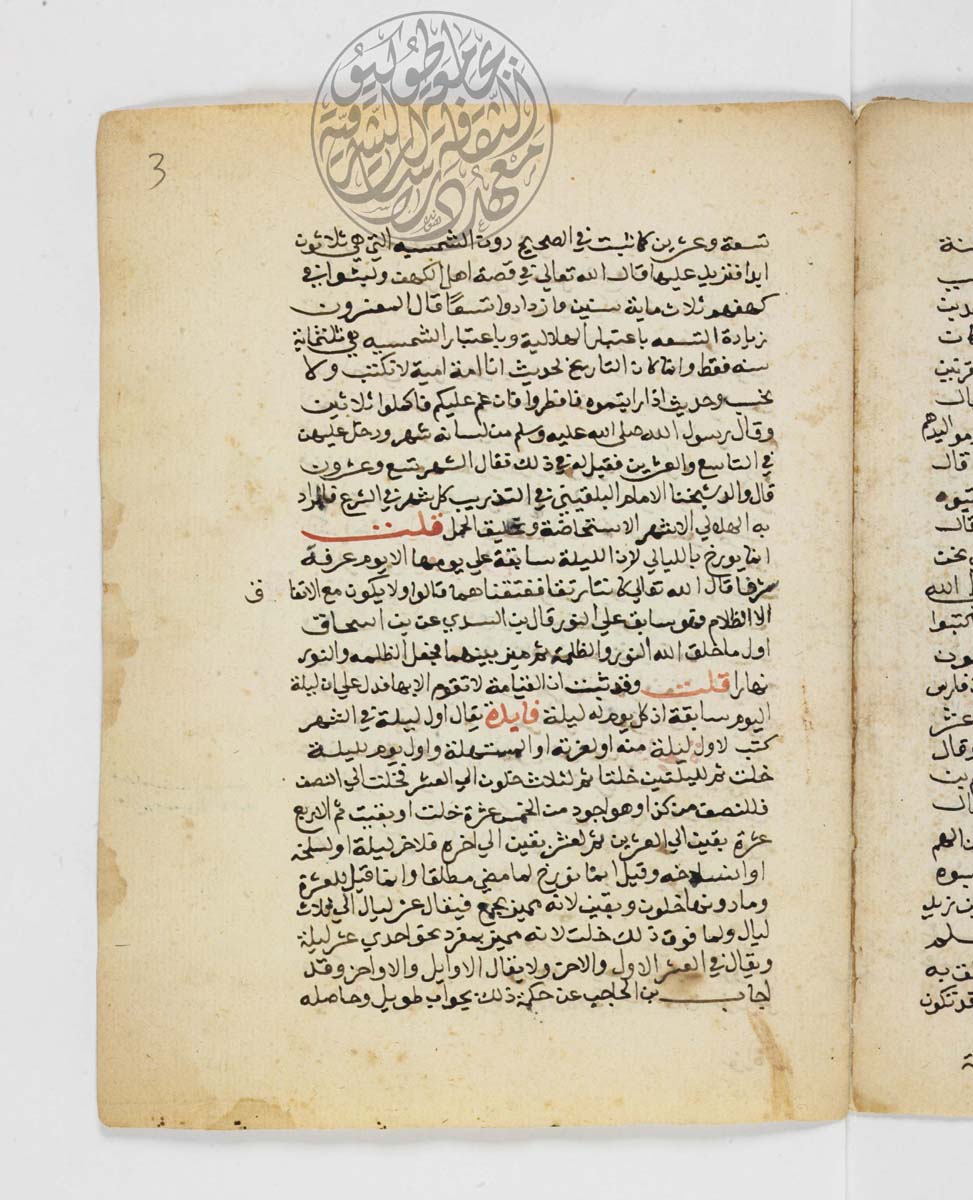 3
تسعة وعشرين كما ثبت في الصحيح دون الشمسية التي هي ثلاثون
ابدا فتزيد عليها قال الله تعالى في قصة اهل الكهف ولبثوا في
كهفهم ثلاث ماية سنين وازدادوا تسعًا قال المفسرون
زيادة التسعه باعتبار الهلالية وباعتبار الشمسيه هي ثلثماية
سنه فقط وانما كان التاريخ لحديث انا امة امية لا نكتب ولا
نحسب وحديث اذا رايتموه فافطروا فان غم عليكم فاكملوا ثلاثين
وقال رسول الله صلى الله عليه وسلم من لسانه شهر ودخل عليهن
في التاسع والعشرين فقيل له في ذلك فقال الشهر تسع وعشرون
قال والد شيخنا الامام البلقيني في التدريب كل شهر في الشرع فالمراد
به الهلالي الا شهر الاستحاضة وتخليق الحمل قلت
انما يورخ بالليالي لان الليلة سابقة على يومها الا يوم عرفة
شرفا قال الله تعالى كانتا رتقا ففتقناهما قالوا ولا يكون مع الارتقا
ق
الا الظلام وهو سابق على النور قال بن السدي عن بن اسحاق
اول ما خلق الله النور والظلمة ثم ميز بينهما فجعل الظلمه والنور
نهارا قلت وقد ثبت ان القيامة لا تقوم الا نهارا فدل على ان ليلة
اليوم سابقة اذ كل يوم له ليلة فايدة يقال اول ليلة في الشهر
كتب لاول ليلة منه او لغرته او المستهلة واول يوم لليلة
خلت ثم لليلتين خلتا ثم لثلاث خلون الى العشر فخلت الى النصف
فللنصف من كذا وهو اجود من الخمس عشرة خلت او بقيت ثم الاربع
عشرة بقين الى العشرين ثم لعشر بقين الى اخره فلاخر ليلة او لسلخه
او انسلاخه وقيل انما نورخ لما مضى مطلقا وانما قيل للعشرة
وما دونها خلون وبقين لانه مميز بجمع فيقال عشر ليال الى ثلاث
ليال ولما فوق ذلك خلت لانه مميز بمفرد نحو احدي عشر ليلة
ويقال في العشر الاول والاخر ولا يقال الاوايل والاواخر وقد
اجاب بن الحاجب عن حكمة ذلك بجواب طويل وحاصله